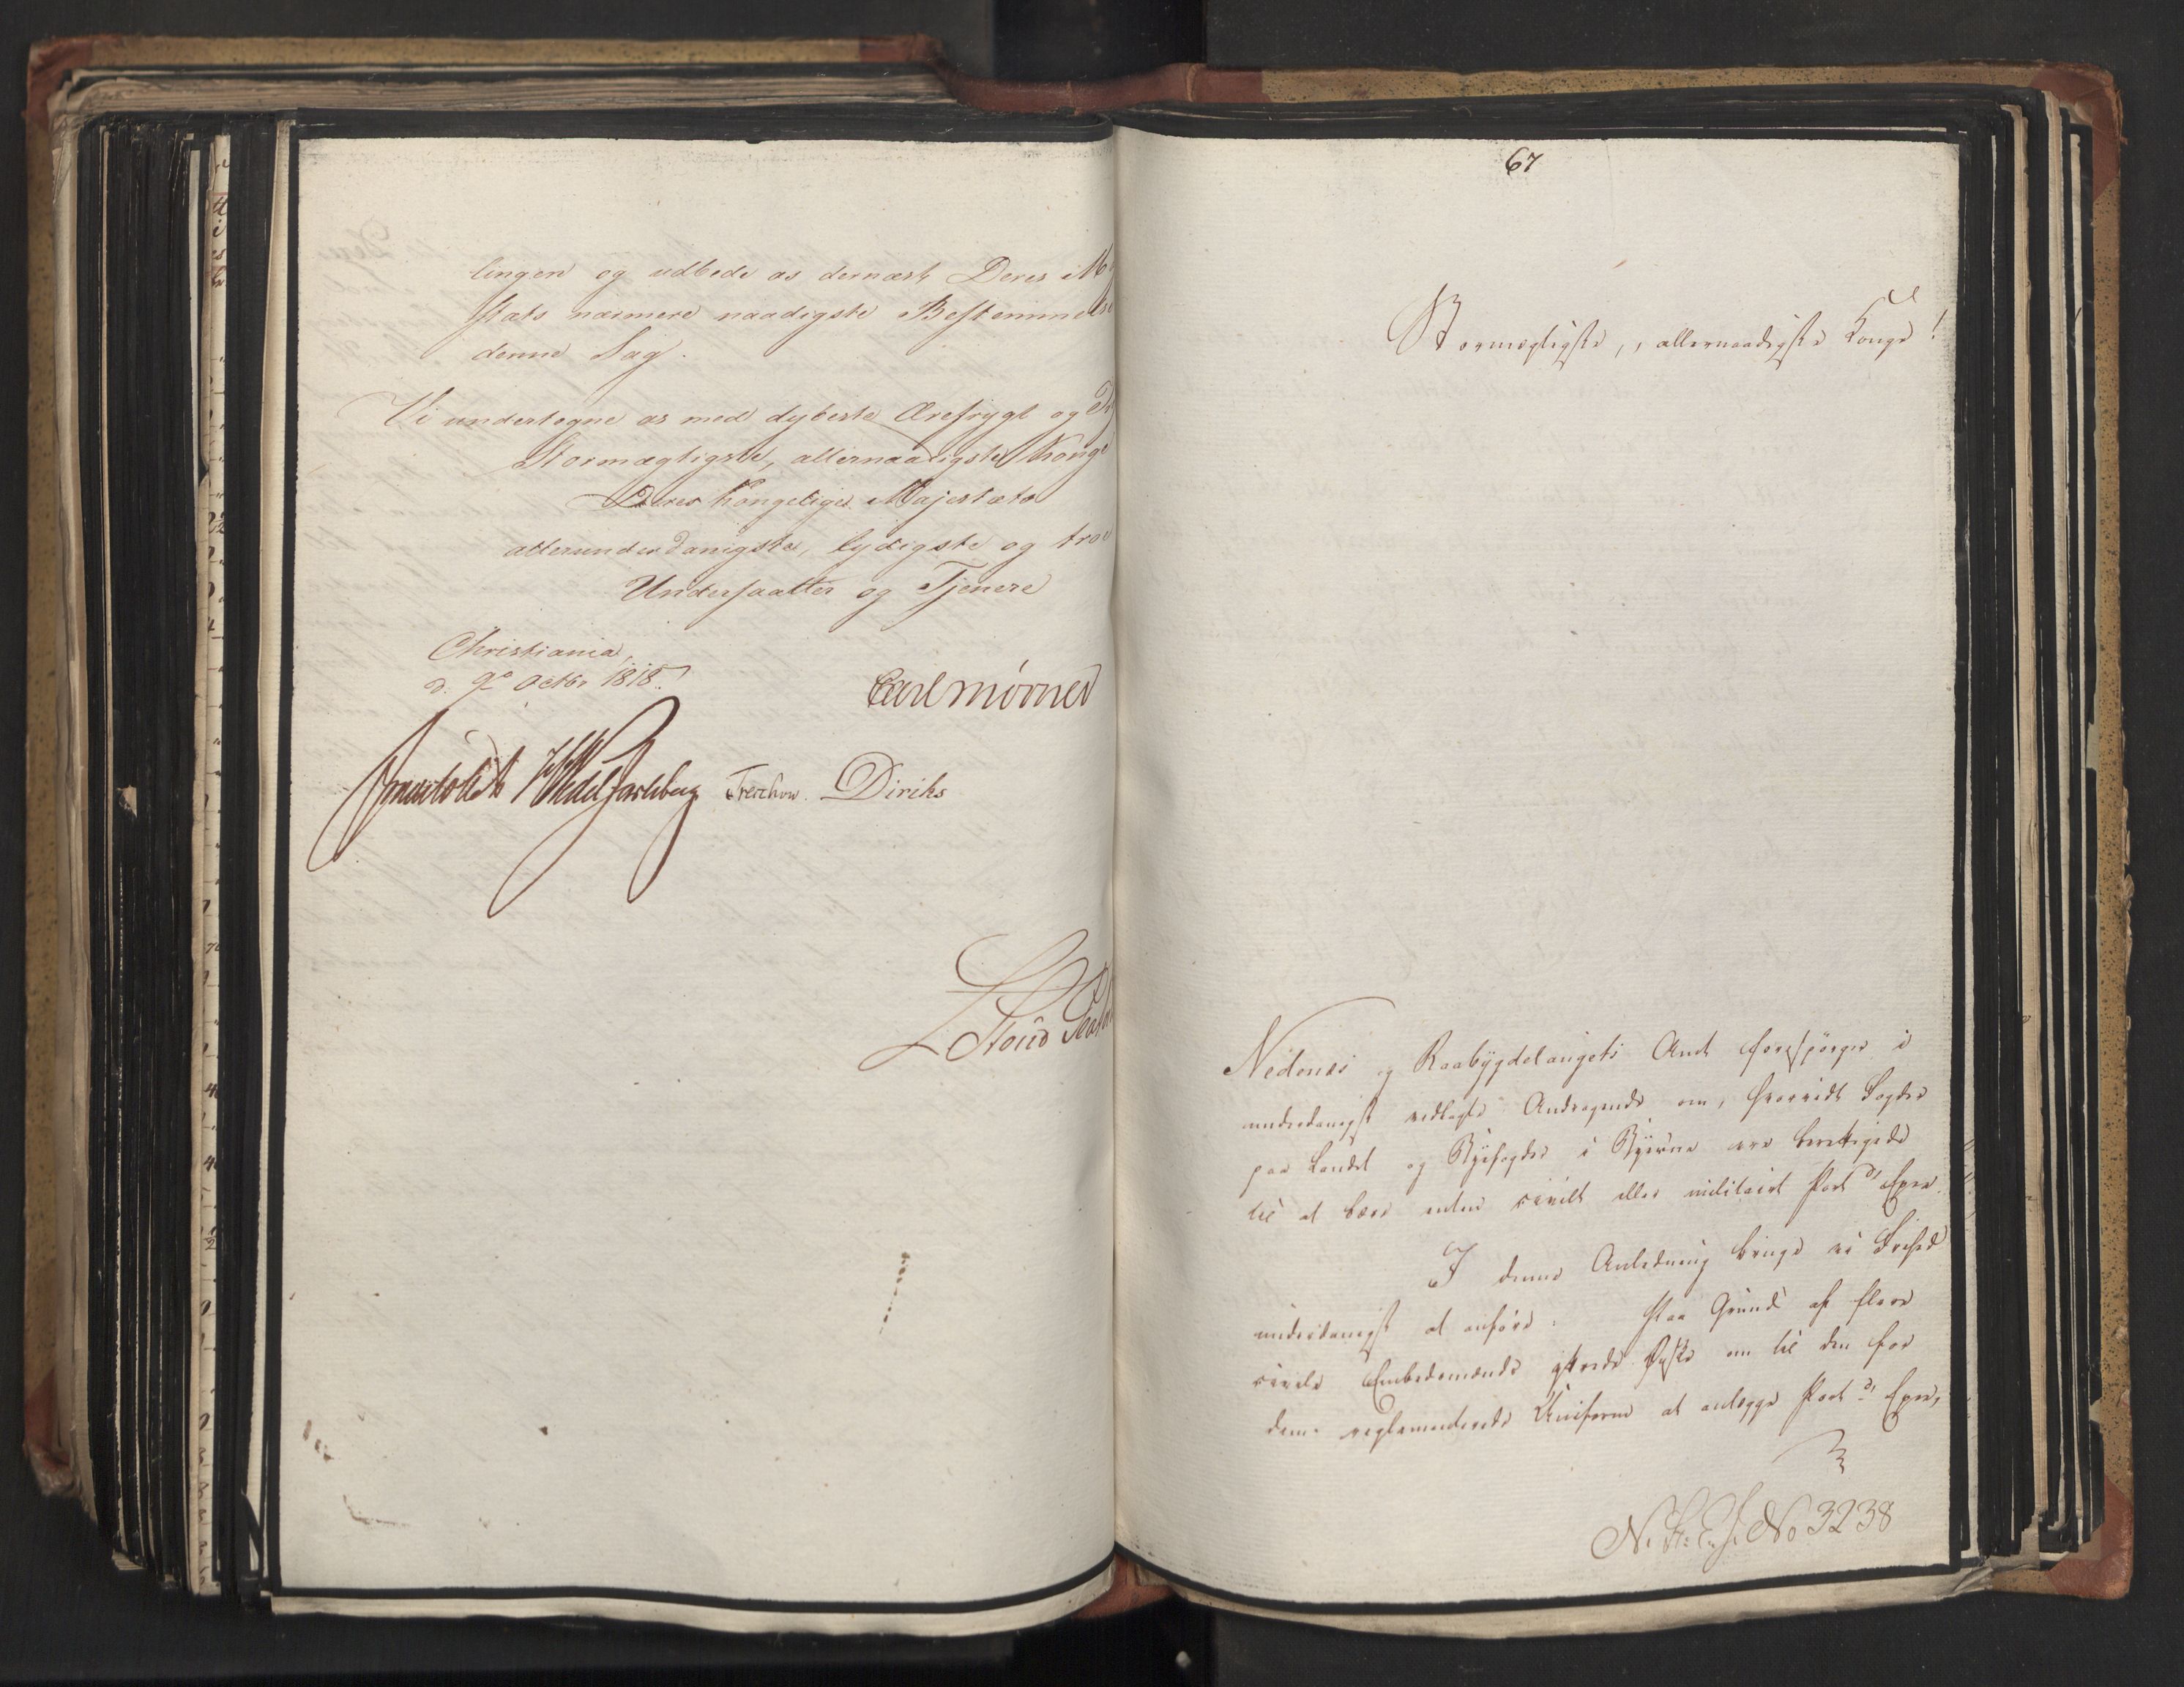 lingen og udbede os dernæst Deres Ma
stæts nærmere naadigste Bestemmelse
denne Sag.
Vi undertegne os med dybeste Ærefrygt og
Stormægtigste, allernaadigste Konge
Deres Kongelige Majestæts
allerunderdanigste, lydigste og troe
Undersaatter og Tjenere
Christiania,
d. 9de Octbr 1818.
Carl Mörner
Sommerhielm HWedel Jarlsberg Treschow. Diriks
L Stoud Plat
67
Stormægtigste, allernaadigste Konge!
Nedenes og Raabygdelaugets Amt forespörger i
underdanigst vedlagte Andragende om, hvorvidt Fogder
paa Landet og Byefogder i Byerne ere berettigede
til at bære enten civilt eller militairt Port d'Epee.
I denne Anledning bringe vi Frihed
underdanigst at anföre: Paa Grund af flere
civile Embedsmænds yttrede Önske om til den for
dem reglementerede Uniform at anlægge Port d'Epee,
No 3238